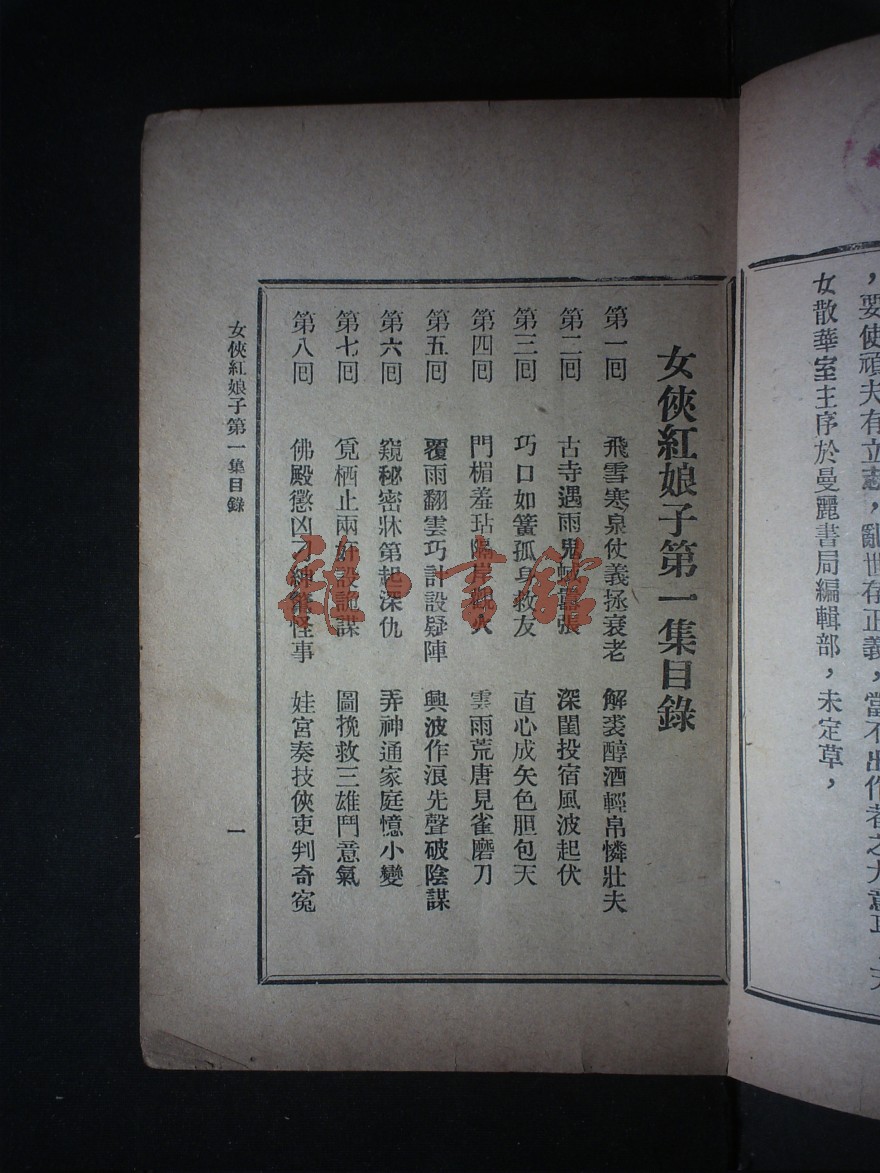 ，要使頑夫有立志，亂世存正義，當不出作者之大意
女散華室主序於曼麗書局編輯部，未定草，
女俠紅娘子第一集目錄
第一回 飛雪寒泉仗義拯衰老 解裘醇酒輕帛憐壯夫
第二回 古寺遇雨鬼蜮囂張 深閨投宿風波起伏
第三回 巧口如簧孤身救友 直心成矢色胆包天
第四回 門楣羞玷隔岸觀火 雲雨荒唐見雀磨刀
第五回 覆雨翻雲巧計設疑陣 興波作浪先聲破陰謀
第六回 窺秘密牀第起深仇 弄神通家庭憶小變
第七回 覓栖止兩奸設詭謀 圖挽救三雄鬥意氣
第八回 佛殿懲凶刁紳怪事 娃宮奏技俠吏判奇寃
女俠紅娘子第一集目錄
一
雅書館